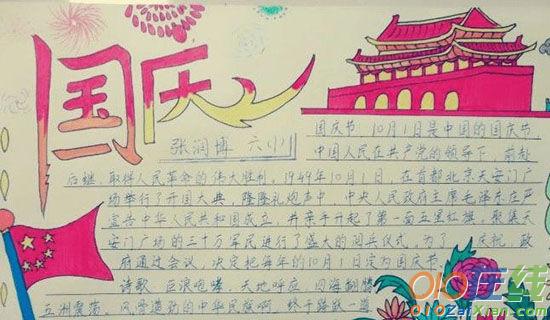 国庆
张润博 六(1)
国庆节，10月1日是中国的国庆节，
中国人民在共产党的领导下，前赴
后继，取得人民革命的伟大胜利，1949年10月1日，在首都北京天安门广
场举行了开国大典，隆隆礼炮声中，中央人民政府主席毛泽东庄严
宣告中华人民共和国成立，并亲手升起了第一面五星红旗，聚集天
安门广场的三十万军民进行了盛大的阅兵仪式，为了 庆祝，政
府通过会议，决定把每年的10月1日定为国庆节。
诗歌：巨浪咆哮，天地呼应，四海翻腾
五洲震荡，风雷激动的中华民族啊，终于踏
在线
ZaiXian.com